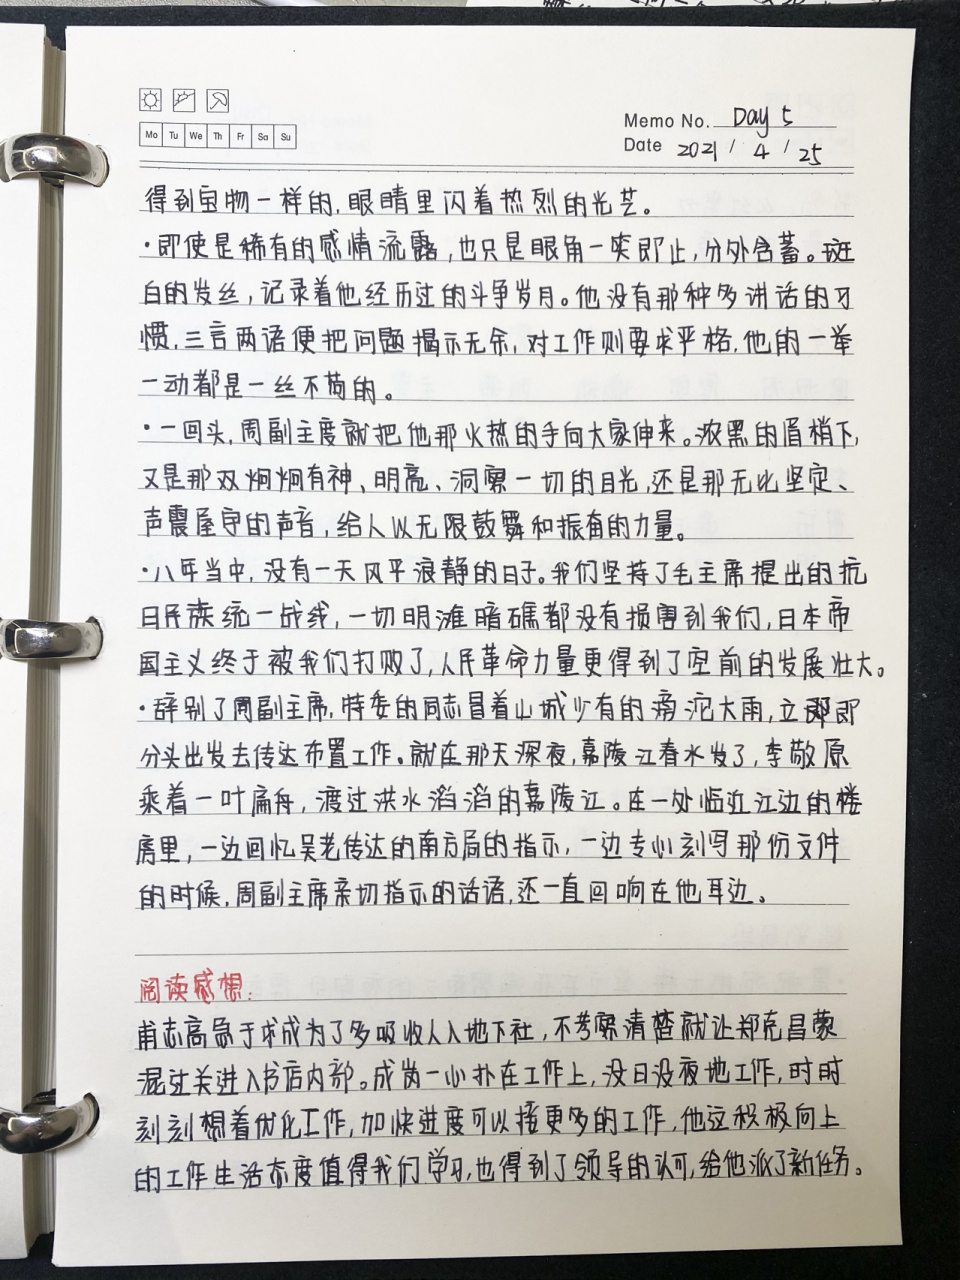 Mo Tu We Th Fr Sa Su
Memo No. Day 5
Date 2021 / 4 / 25
得到宝物一样的,眼睛里闪着热烈的光芒。
·即使是稀有的感情流露,也只是眼角一笑即止,分外含蓄。斑
白的发丝,记录着他经历过的斗争岁月。他没有那种多讲话的习
惯,三言两语便把问题揭示无余,对工作则要求严格,他的一举
一动都是一丝不苟的。
·一回头,周副主席就把他那火热的手向大家伸来。浓黑的眉梢下,
又是那双炯炯有神、明亮、洞察一切的目光,还是那无比坚定、
声震屋宇的声音,给人以无限鼓舞和振奋的力量。
·八年当中,没有一天风平浪静的日子。我们坚持了毛主席提出的抗
日民族统一战线,一切明滩暗礁都没有损害到我们,日本帝
国主义终于被我们打败了,人民革命力量更得到了空前的发展壮大。
·辞别了周副主席,特委的同志冒着山城少有的滂沱大雨,立即
分头出发去传达布置工作。就在那天深夜,嘉陵江春水发了,李敬原
乘着一叶扁舟,渡过洪水滔滔的嘉陵江。在一处临近江边的楼
房里,一边回忆吴老传达的南方局的指示,一边专心刻写那份文件
的时候,周副主席亲切指示的话语,还一直回响在他耳边。
阅读感想:
甫志高急于求成为了多吸收人入地下社,不考察清楚就让郑克昌蒙
混过关进入书店内部。成岗一心扑在工作上,没日没夜地工作,时时
刻刻想着优化工作,加快进度可以接更多的工作,他这积极向上
的工作生活态度值得我们学习,也得到了领导的认可,给他派了新任务。